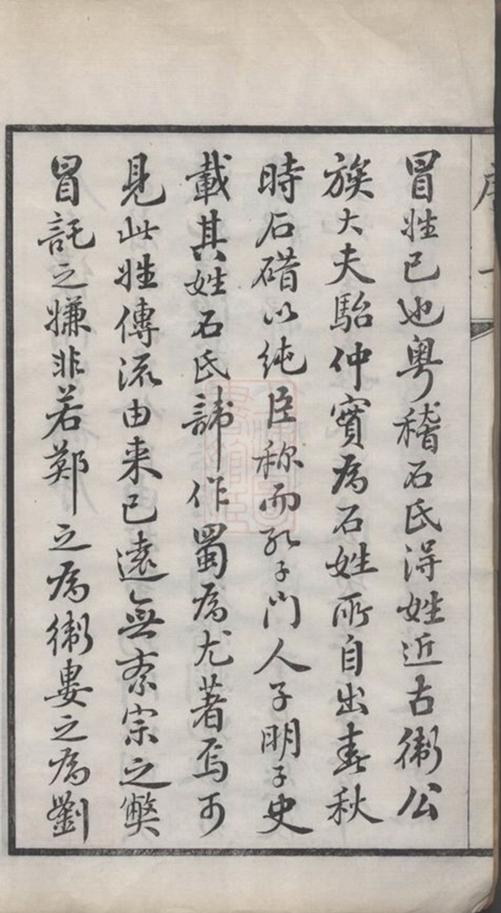 冒姓已也粤稽石氏得姓近古衛公
族大夫駘仲實為石姓所自出春秋
時石碏以純臣称而孔子門人子明子史
載其姓石氏譜作蜀為尤著焉可
見此姓傳流由来已遠無紊宗之弊
冒託之嫌非若鄭之為衛婁之為劉
序